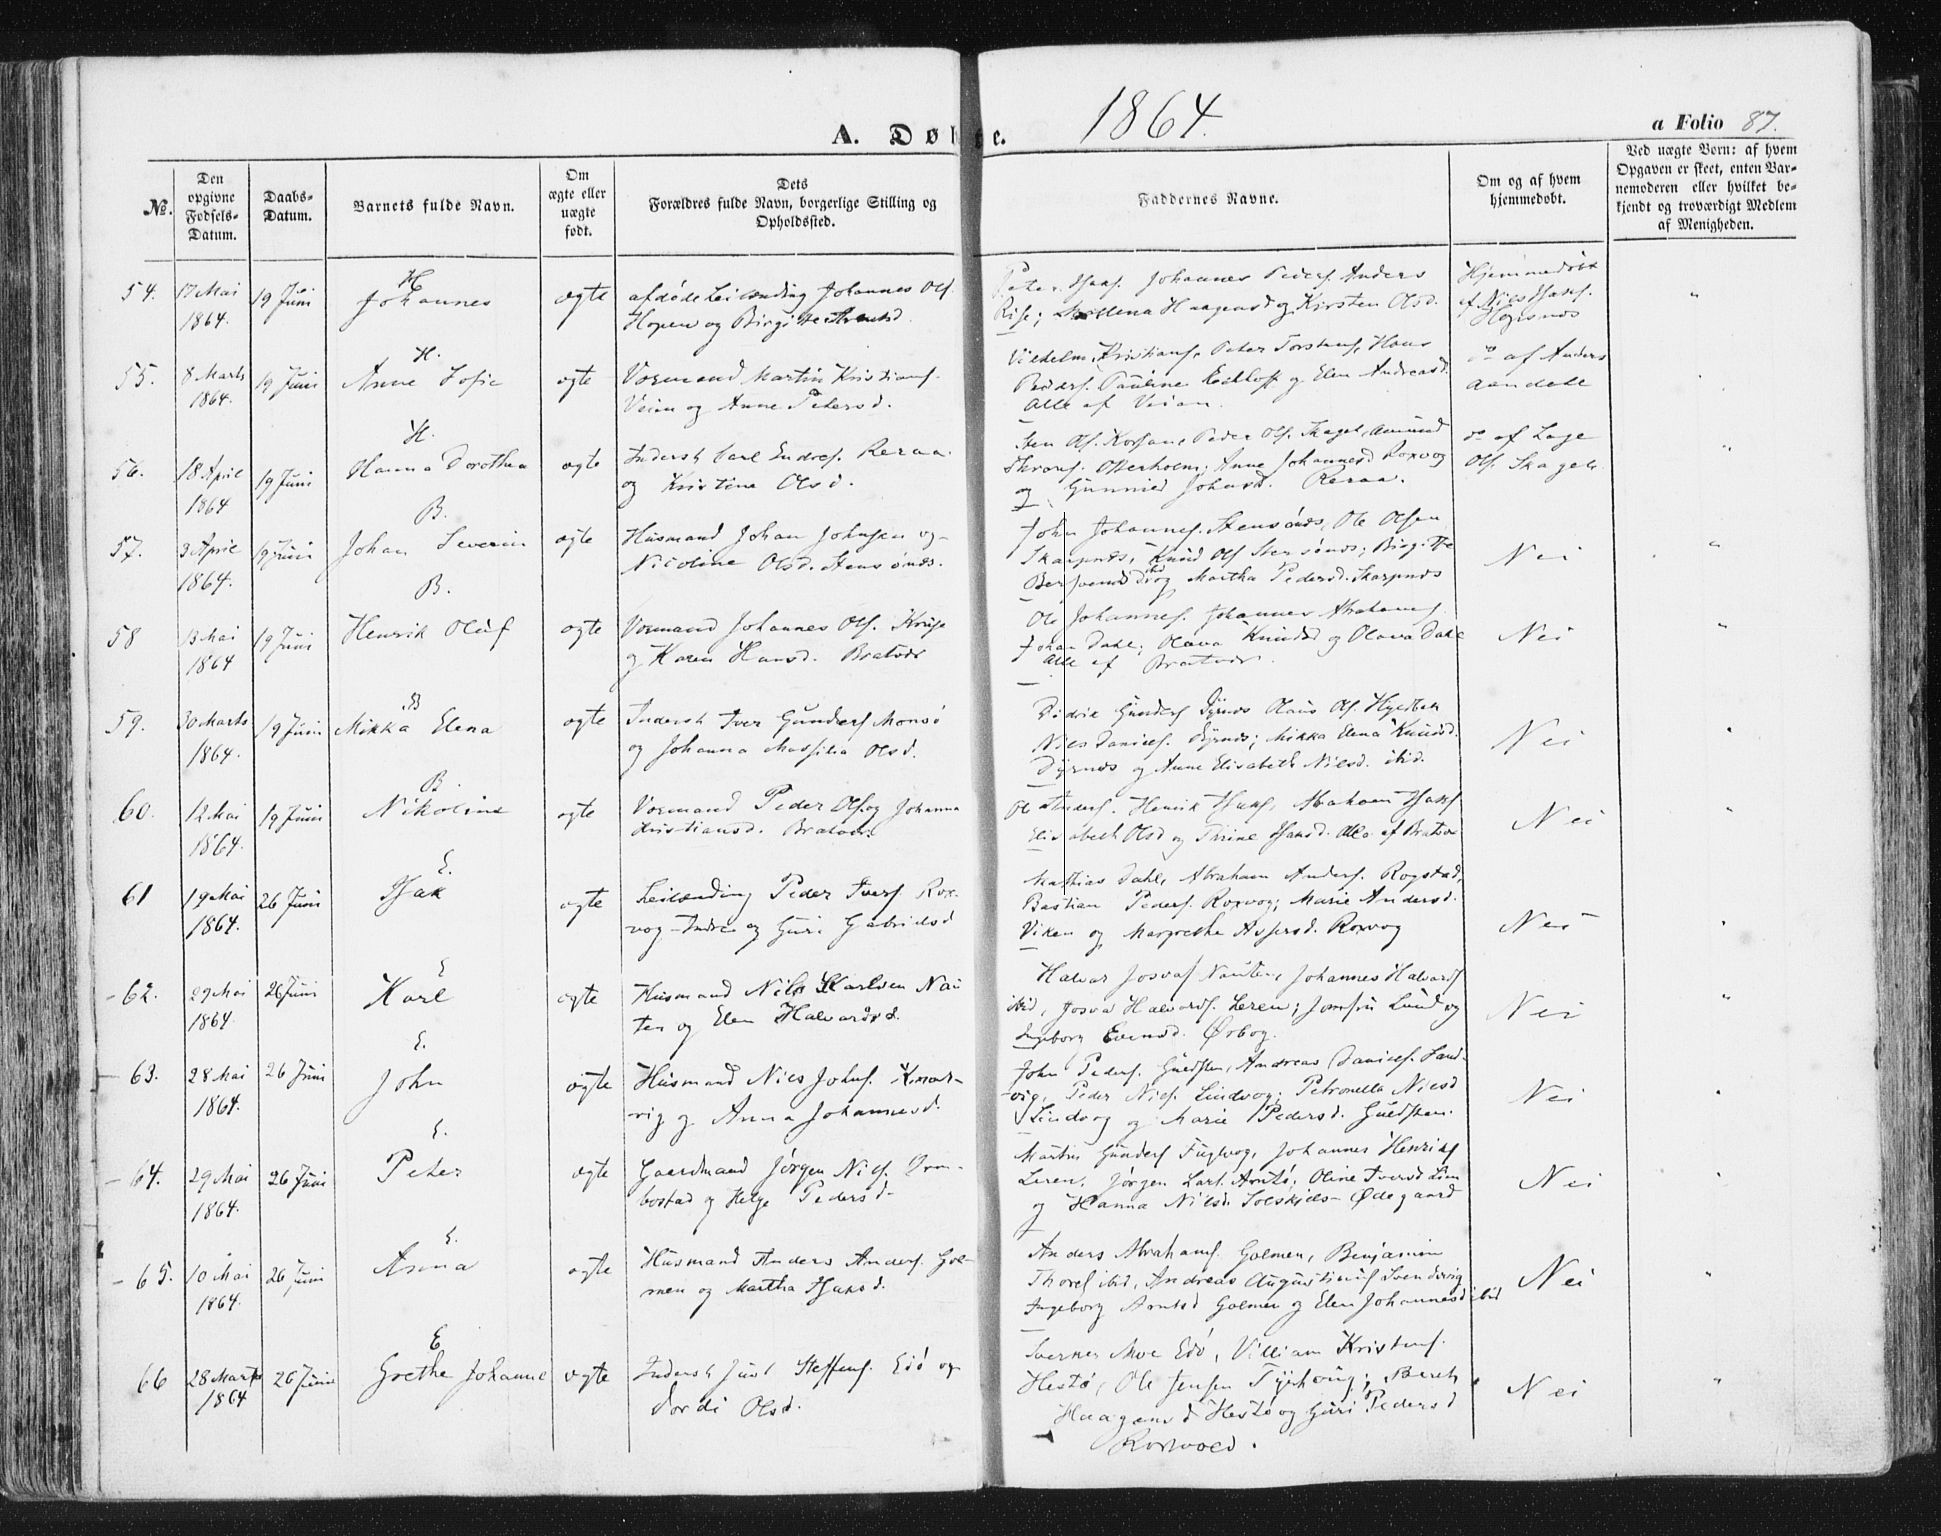 1864.
A. Døbte.
a Folio 87.
№.
Den opgivne Fødsels-Datum.
Daabs-Datum.
Barnets fulde Navn.
Om ægte eller uægte født.
Dets Forældres fulde Navn, borgerlige Stilling og Opholdssted.
Faddernes Navne.
Om og af hvem hjemmedøbt.
Ved uægte Børn: af hvem Opgaven er skeet, enten Barnemoderen eller hvilket bekjendt og troværdigt Medlem af Menigheden.
54. 17 Mai 1864. 19 Juni H. Johannes ægte
afdøde Leilænding Johannes Ols.
Hopen og Birgitte
Peter Isaks. Johannes Peders. Anders
Rise; Haagensd og Kirsten Olsd.
Hjemmedøbt
af Niels Isaks.
"
55. 8 Marts 1864. 19 Juni H. Anne Sofie ægte
Vormand Martin Kristians.
Veien og Anne Petersd.
Vilhelm Kristians, Peter Torstens, Hans
Peders. Pauline og Elen Andreasd.
Alle af Veien.
do af Anders
Aandahl
56. 18 April 1864 19 Juni H. Hanna Dorothea ægte
Inderst Carl Endres. Reraa
og Kristine Olsd.
Sten Ols. Korsnes, Peder Ols. Skagel, Amund
Throns. Otterholm; Anne Johannesd Roxvog
og Gunnild Johnsd. Reraa.
do af Lage
Ols. Skagel
"
57. 3 April 1864. 19 Juni B. Johan Severin ægte
Husmand Johan Johnsen og
Nicoline Olsd. Stensønes.
John Johannes. Stensønes, Ole Olsen
Skarpnes, Knud Ols Stensønes; Birgitte
og Martha Pedersd. Skarpnes
Nei
"
58 13 Mai 1864 19 Juni B. Henrik Oluf ægte
Vormand Johannes Ols. Krüge
og Karen Hansd. Bratvær
Ole Johannes. Johannes Abrahams
Johan Dahl; Olava Knudsd og Olava Dahl
Alle af Bratvær.
Nei
"
59. 30 Marts 1864. 19 Juni B Mikka Elena ægte
Inderst Iver Gunders Monsø
og Johanna Massilia Olsd.
Didrik Gunders Dyrnes Olaus Ols.
Niels Daniels. Dyrnes; Mikka Elena Knudsd.
Dyrnes og Anne Elisabeth Nilsd. ibid.
Nei
60. 12 Mai 1864. 19 Juni B. Nikoline ægte
Vormand Peder Ols. og Johanna
Kristiansd. Bratvær
Ole Anders. Henrik Isaks, Abraham Isaks
Elisabeth Olsd og Thrine Isaksd. Alle af Bratvær
Nei
"
61 19 Mai 1864. 26 Juni E. Isak ægte
Leilænding Peder Ivers Rox-
vog-Indre og Guri Gabrielsd
Mathias Dahl, Abraham Anders. Rogstad,
Bastian Peders. Roxvog; Marie Andersd.
Viken og Margrethe Aspersd. Roxvog
Nei
"
62. 29 Mai 1864. 26 Juni E Karl ægte
Husmand Nils Karlsen Nau-
ten og Elen Halvardsd.
Halvar Josvas Nauten, Johannes Halvards
ibid, Josva Halvards. Leren; Lund og
Ingeborg Evensd. Ørbog.
Nei
"
63. 28 Mai 1864. 26 Juni E. John ægte
Husmand Niels Johns. Knar-
vig og Anna Johannesd.
John Peders. Guldsten, Andreas Daniels. Sand-
vig, Peder Niels. Lindvog; Petronella Nielsd
Lindvog og Marie Pedersd. Guldsten.
Nei
64. 29 Mai 1864. 26 Juni E. Peter ægte
Gaardmand Jørgen Niels. Orn-
bostad og Helge Pedersd
Martin Gunders Fuglvog, Johannes Henriks
Leren, Jørgen Lars. Arntø; Oline Iversd
og Hanna Nilsd. Solskjels-Ødegaard
Nei
65. 10 Mai 1864. 26 Juni E. Anna ægte
Husmand Anders Anders. Gol-
men og Martha Isaksd.
Anders Abrahams. Golmen, Benjamin
Thores ibid, Andreas Augustinus
Ingeborg Arntsd Golmen og Elen Johannesd ibid
Nei
"
66 28 Marts 1864 26 Juni E Grethe Johanne ægte
Inderst Juul Steffens. Edø og
Dordi Olsd.
Sverner Moe Edø, Villiam Kristens.
Hestø, Ole Jensen Tyrhoug; Bereth
Haagensd Hestø og Guri Pedersd
Roxvold.
Nei
"